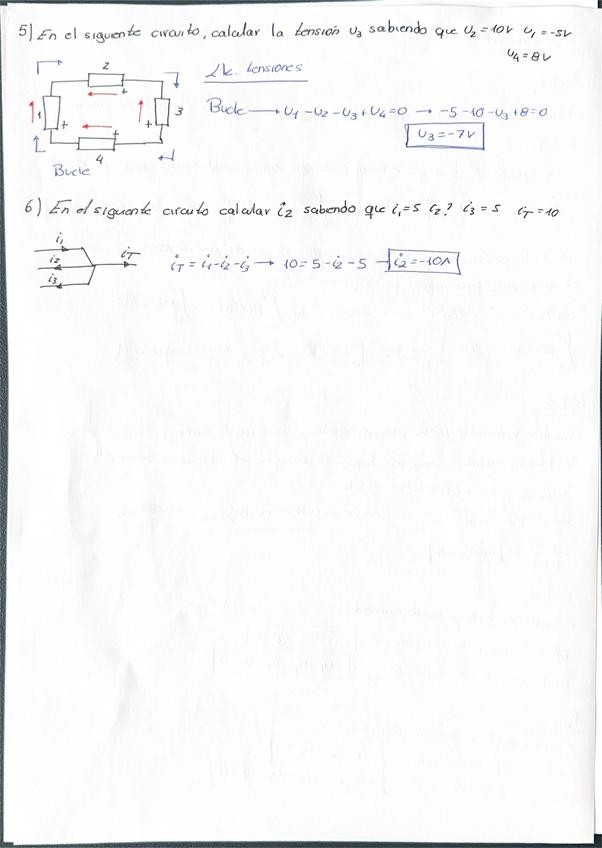 5) En el siguiente circuito, calcular la tensión U3 sabiendo que U2 = 10V U1 = -5V
U4 = 8V
2
1
3
4
+
+
+
+
Bucle
LK. tensiones
Bucle → U1 - U2 - U3 + U4 = 0 → -5 - 10 - U3 + 8 = 0
U3 = -7V
6) En el siguiente circuito calcular i2 sabiendo que i1 = 5 i2? i3 = 5 iT = 10
i1
i2
i3
iT
iT = i1 - i2 - i3 → 10 = 5 - i2 - 5 → i2 = -10A